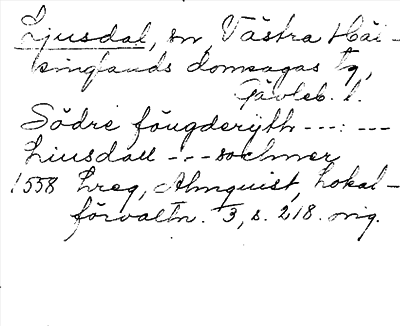 Ljusdal, sn, Västra Häl-
singlands domsagas tg,
Gävleb. l.
Södre fougderijth ---: ---
Liusdall --- sochner
1558 Lreg, Almquist, Lokal-
förvaltn. 3, s. 218. orig.